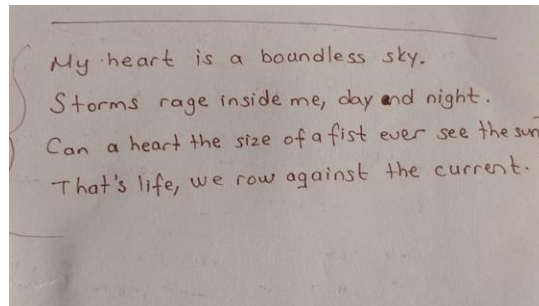 My heart is a boundless sky.
Storms rage inside me, day and night.
Can a heart the size of a fist ever see the sun
That's life, we row against the current.